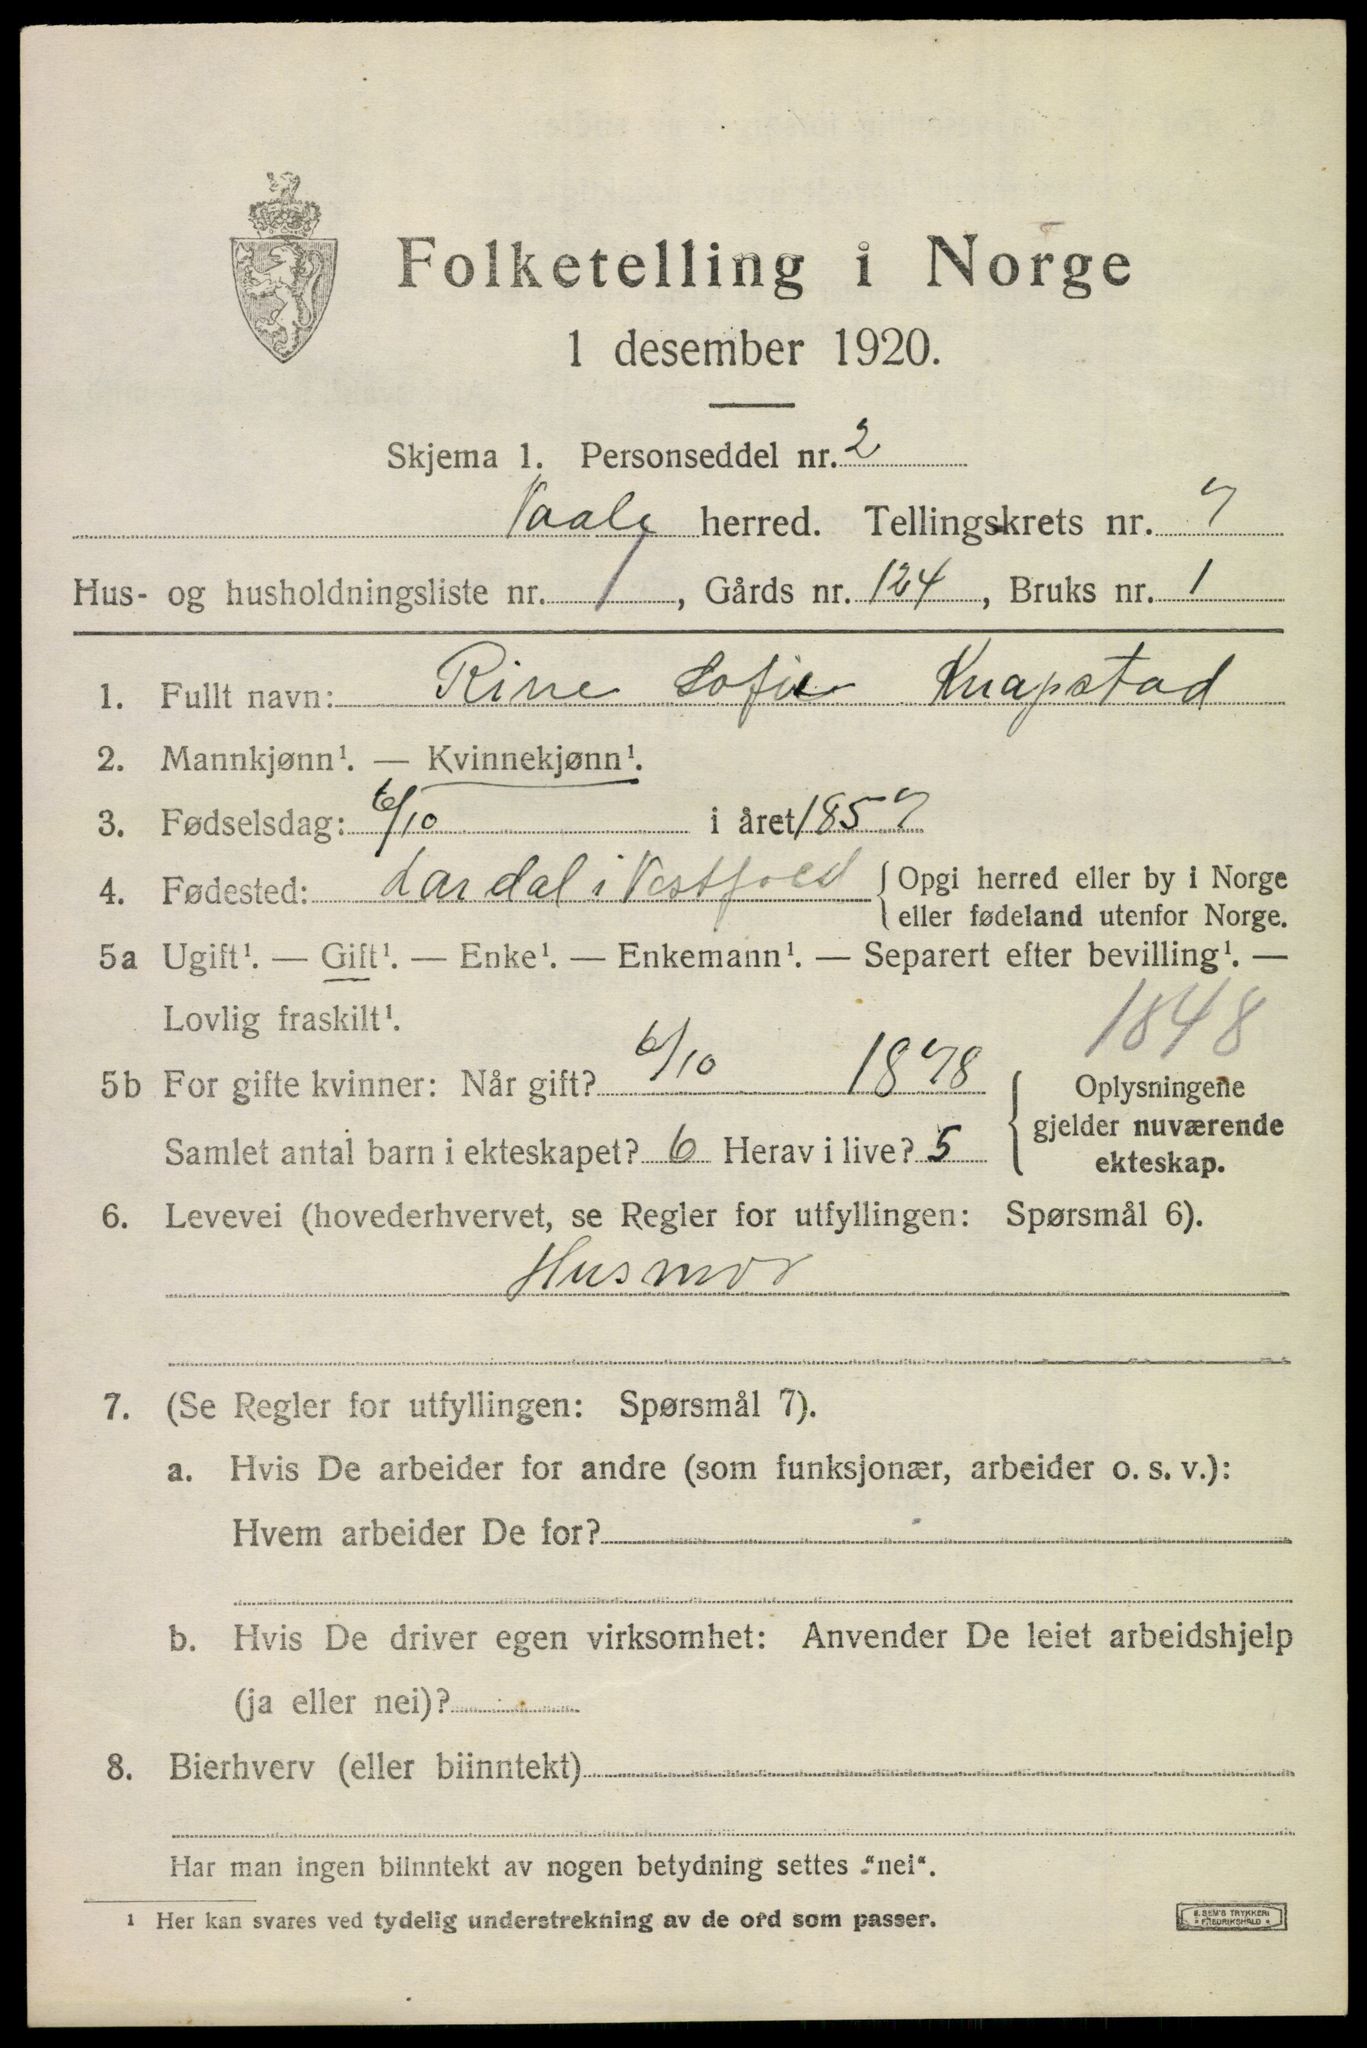 Folketelling i Norge
1 desember 1920.
Skjema 1. Personseddel nr. 2
Vaale herred. Tellingskrets nr. 7
Hus- og husholdningsliste nr. 1, Gårds nr. 124, Bruks nr. 1
1. Fullt navn: Rine Sofie Knapstad
2. Mannkjønn¹. — Kvinnekjønn¹.
3. Fødselsdag: 6/10 i året 1857
4. Fødested: Lardal i Vestfold { Opgi herred eller by i Norge
eller fødeland utenfor Norge.
5a Ugift¹. — Gift¹. — Enke¹. — Enkemann¹. — Separert efter bevilling¹. —
Lovlig fraskilt¹.
1848
5b For gifte kvinner: Når gift? 6/10 1878
Samlet antal barn i ekteskapet? 6 Herav i live? 5
{ Oplysningene
gjelder nuværende
ekteskap.
6. Levevei (hovederhvervet, se Regler for utfyllingen: Spørsmål 6).
Husmor
7. (Se Regler for utfyllingen: Spørsmål 7).
a. Hvis De arbeider for andre (som funksjonær, arbeider o. s. v.):
Hvem arbeider De for?
b. Hvis De driver egen virksomhet: Anvender De leiet arbeidshjelp
(ja eller nei)?
8. Bierhverv (eller biinntekt)
Har man ingen biinntekt av nogen betydning settes "nei".
¹ Her kan svares ved tydelig understrekning av de ord som passer.
E. SEM'S TRYKKERI
FREDRIKSHALD